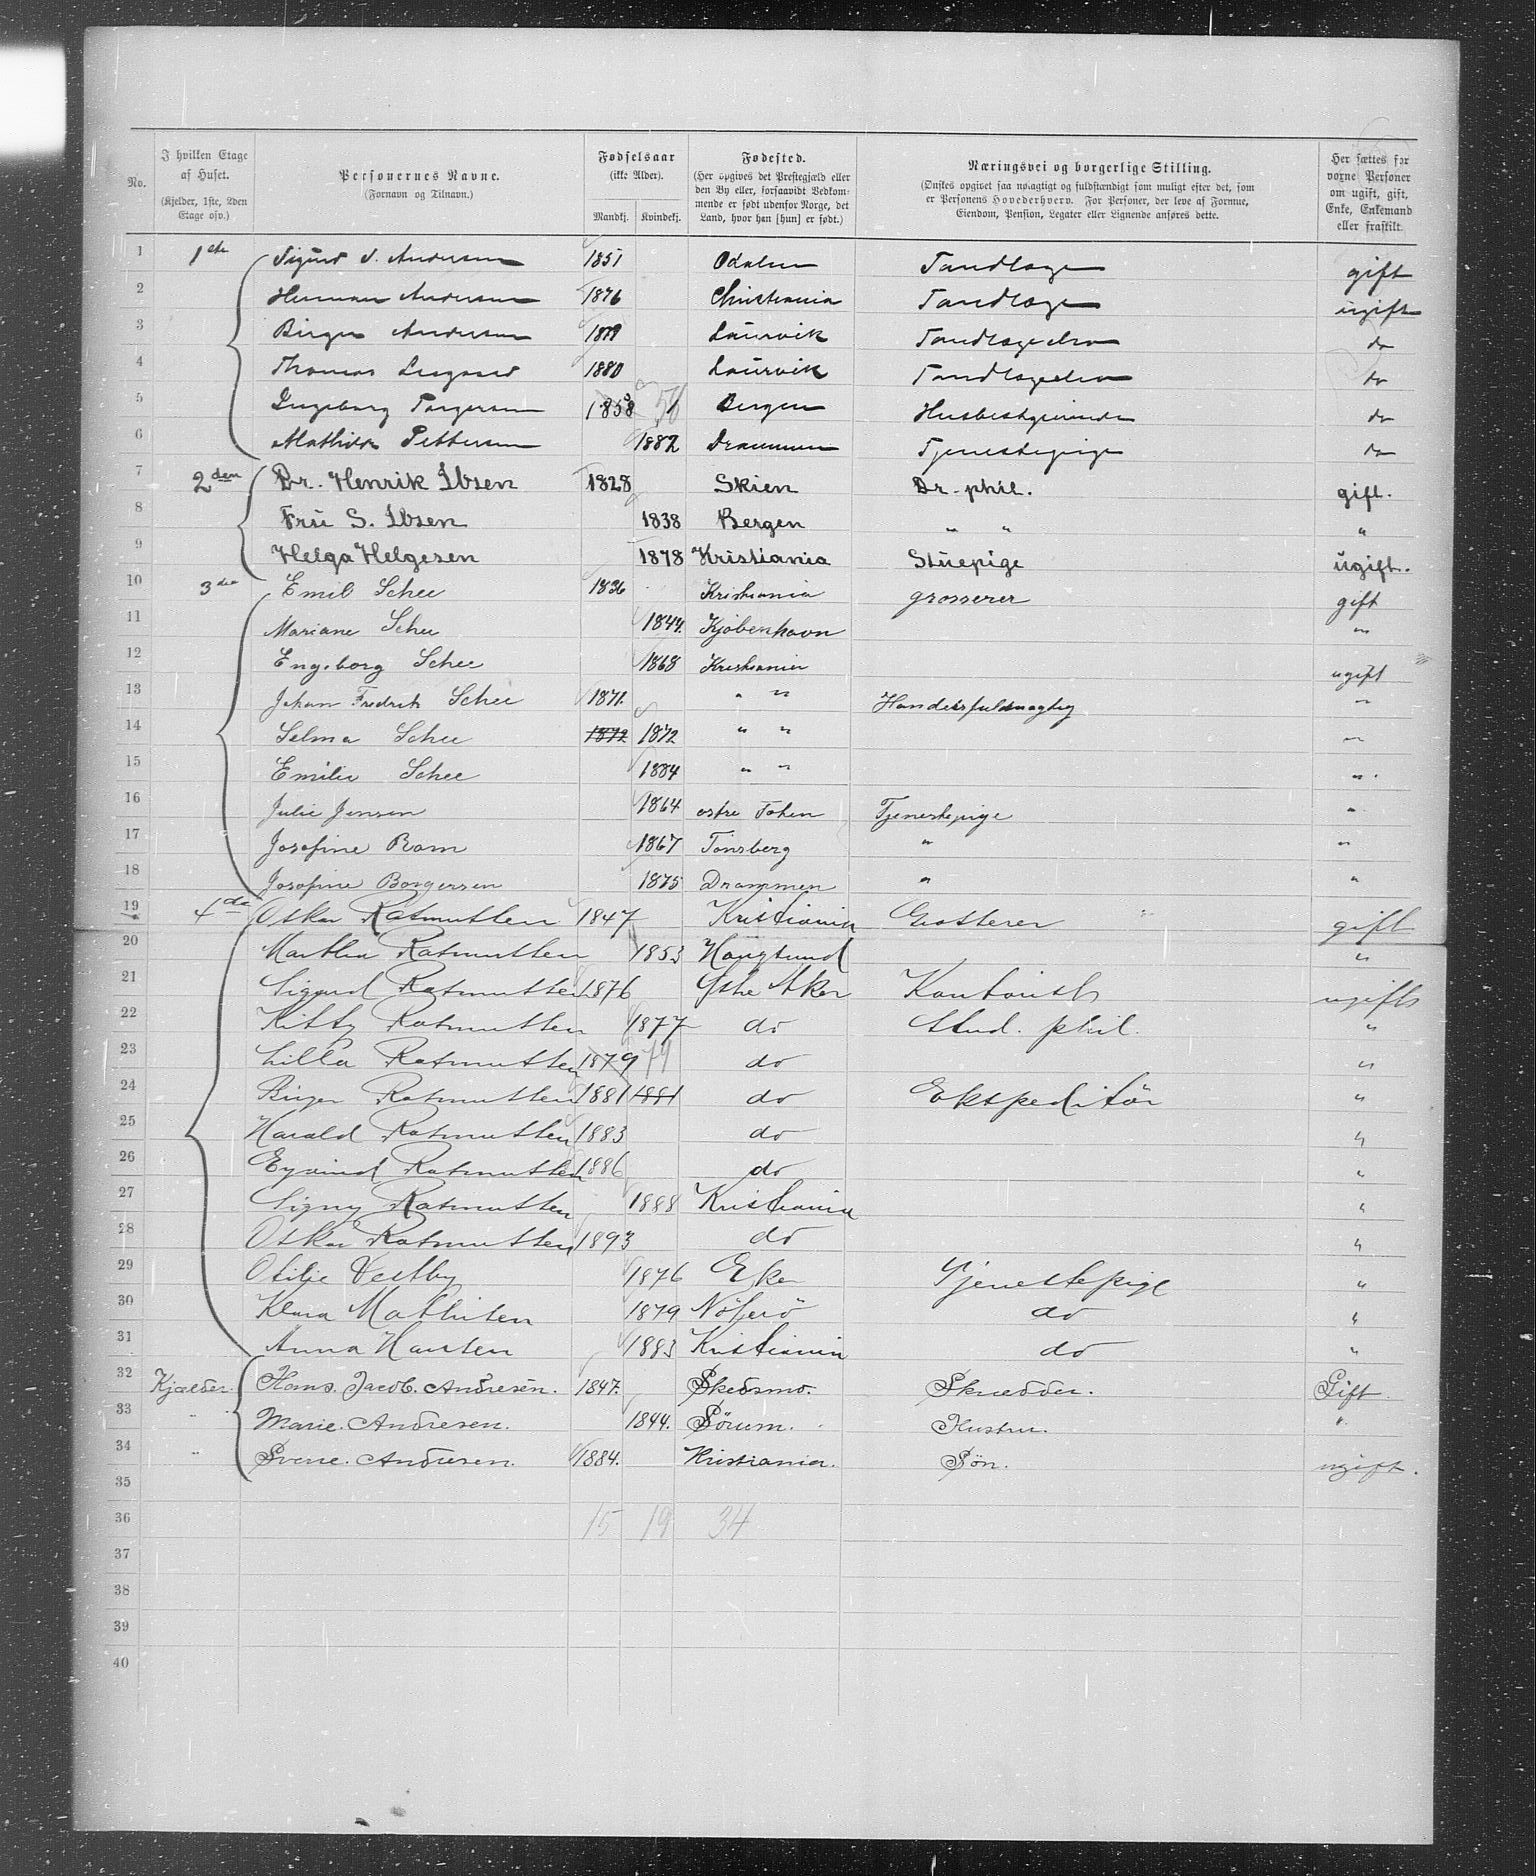 No.
I hvilken Etage af Huset.
(Kjelder, 1ste, 2den Etage osv.)
Personernes Navne.
(Fornavn og Tilnavn.)
Fødselsaar
(ikke Alder).
Mandkj.
Kvindekj.
Fødested.
(Her opgives det Prestegjæld eller den By eller, forsaavidt Vedkommende er født udenfor Norge, det Land, hvor han [hun] er født.)
Næringsvei og borgerlige Stilling.
(Ønskes opgivet saa nøiagtigt og fuldstændigt som muligt efter det, som er Personens Hovederhverv. For Personer, der leve af Formue, Eiendom, Pension, Legater eller Lignende anføres dette.
Her sættes for voxne Personer om ugift, gift, Enke, Enkemand eller fraskilt.
1 1ste Sigurd S. Andersen 1851 Odalen Tandlæge gift
2 Herman Andersen 1876 Christiania Tandlæge ugift
3 Birger Andersen 1879 Laurvik Tandlægeelev do
4 Thomas 1880 Laurvik Tandlægeelev do
5 Ingeborg Torgersen 1858 58 Bergen Husbestyrerinde do
6 Mathilde Pettersen 1882 Drammen Tjenestepige do
7 2den Dr. Henrik Ibsen 1828 Skien Dr. phil. gift.
8 Fru S. Ibsen 1838 Bergen " " "
9 Helga Helgesen 1878 Kristiania Stuepige ugift.
10 3die Emil Schee 1836 Kristiania grosserer gift
11 Mariane Schee 1844. Kjøbenhavn "
12 Engeborg Schee 1868 Kristiania ugift
13 Johan Fredrik Schee 1871. " " Handelsfuldmægtig "
14 Selma Schee 1872 1872 " " "
15 Emilie Schee 1884 " " "
16 Julie Jensen 1864 østre Toten Tjenestepige "
17 Josefine Ram 1867 Tønsberg " "
18 Josefine Borgersen 1875 Drammen " "
19 4de Oskar Rasmussen 1847 Kristiania Grosserer gift
20 Martha Rasmussen 1853 Haugsund "
21 Sigurd Rasmussen 1876 Østre Aker Kontorist ugift
22 Kitty Rasmussen 1877 do Stud. phil. "
23 Lilla Rasmussen 1879 79 do "
24 Birger Rasmussen 1881 1881 do Ekspeditør "
25 Harald Rasmussen 1883 do "
26 Eyvind Rasmussen 1886 do "
27 Signy Rasmussen 1888 Kristiania "
28 Oskar Rasmussen 1893 do "
29 Otilie Vestby 1876 Eker Tjenestepige "
30 Klara Mathisen 1879 Nøterø do "
31 Anna Hansen 1883 Kristiania do "
32 Kjælder. Hans. Jacob. Andresen. 1847. Skedsmo. Skrædder. Gift.
33 " Marie. Andresen. 1844. Sørum. Hustru. "
34 " Sverre. Andresen. 1884. Kristiania. Søn. ugift.
35
36 15 19 34
37
38
39
40